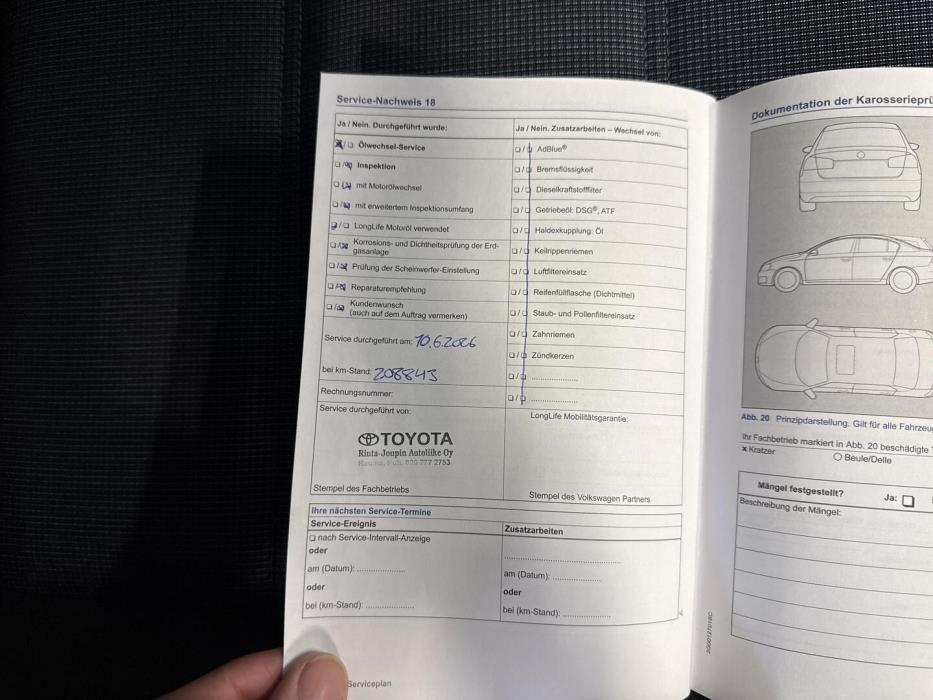 Service-Nachweis 18
Ja / Nein. Durchgeführt wurde:
Ölwechsel-Service
Inspektion
mit Motorölwechsel
mit erweitertem Inspektionsumfang
LongLife Motoröl verwendet
Korrosions- und Dichtheitsprüfung der Erd-
gasanlage
Prüfung der Scheinwerfer-Einstellung
Reparaturempfehlung
Kundenwunsch
(auch auf dem Auftrag vermerken)
Service durchgeführt am: 10.6.2026
bei km-Stand: 208843
Rechnungsnummer:
Service durchgeführt von:
TOYOTA
Rinta-Jouppi Autoliike Oy
777 2753
Stempel des Fachbetriebs
Ja / Nein. Zusatzarbeiten – Wechsel von:
AdBlue®
Bremsflüssigkeit
Dieselkraftstofffilter
Getriebeöl: DSG®, ATF
Haldexkupplung: Öl
Keilrippenriemen
Luftfiltereinsatz
Reifenfüllflasche (Dichtmittel)
Staub- und Pollenfiltereinsatz
Zahnriemen
Zündkerzen
LongLife Mobilitätsgarantie:
Stempel des Volkswagen Partners
Ihre nächsten Service-Termine
Service-Ereignis
nach Service-Intervall-Anzeige
oder
am (Datum):
oder
bei (km-Stand):
Zusatzarbeiten
am (Datum):
oder
bei (km-Stand):
Serviceplan
Dokumentation der Karosserieprü
Abb. 20 Prinzipdarstellung. Gilt für alle Fahrzeug
Ihr Fachbetrieb markiert in Abb. 20 beschädigte
x Kratzer
Beule/Delle
Mängel festgestellt?
Ja:
Beschreibung der Mängel: